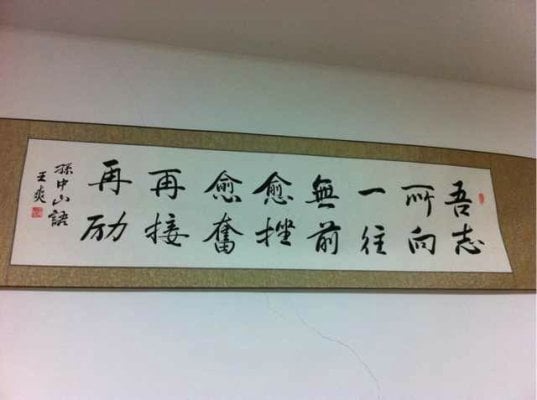 吾志
所向
一往
無前
愈挫
愈奮
再接
再励
孫中山語
王爽